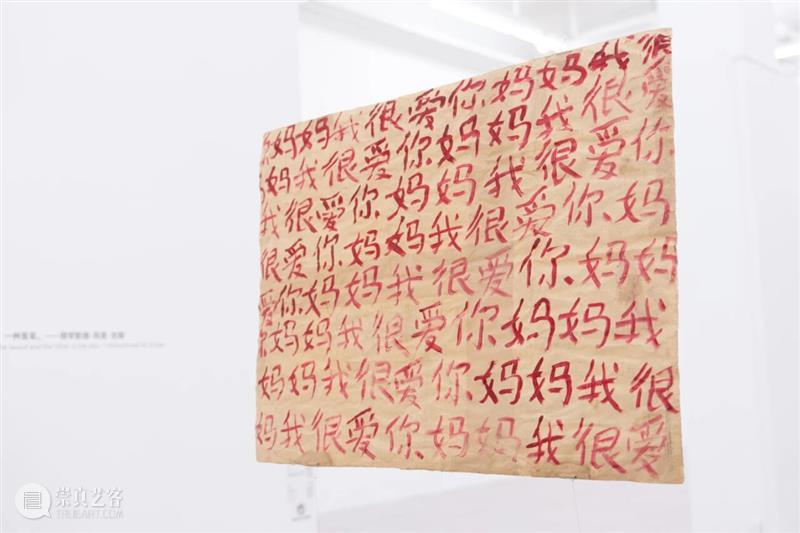 你妈妈我很爱你妈妈我很
妈妈我很爱你妈妈我很爱
我很爱你妈妈我很爱你
很爱你妈妈我很爱你妈
爱你妈妈我很爱你妈妈
你妈妈我很爱你妈妈我
妈妈我很爱你妈妈我很
妈我很爱你妈妈我很爱
崇真艺客
TRUEART.COM